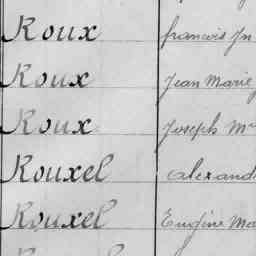 Roux francois Jn
Roux Jean Marie
Roux Joseph Me
Rouxel alexand
Rouxel Eugène Ma